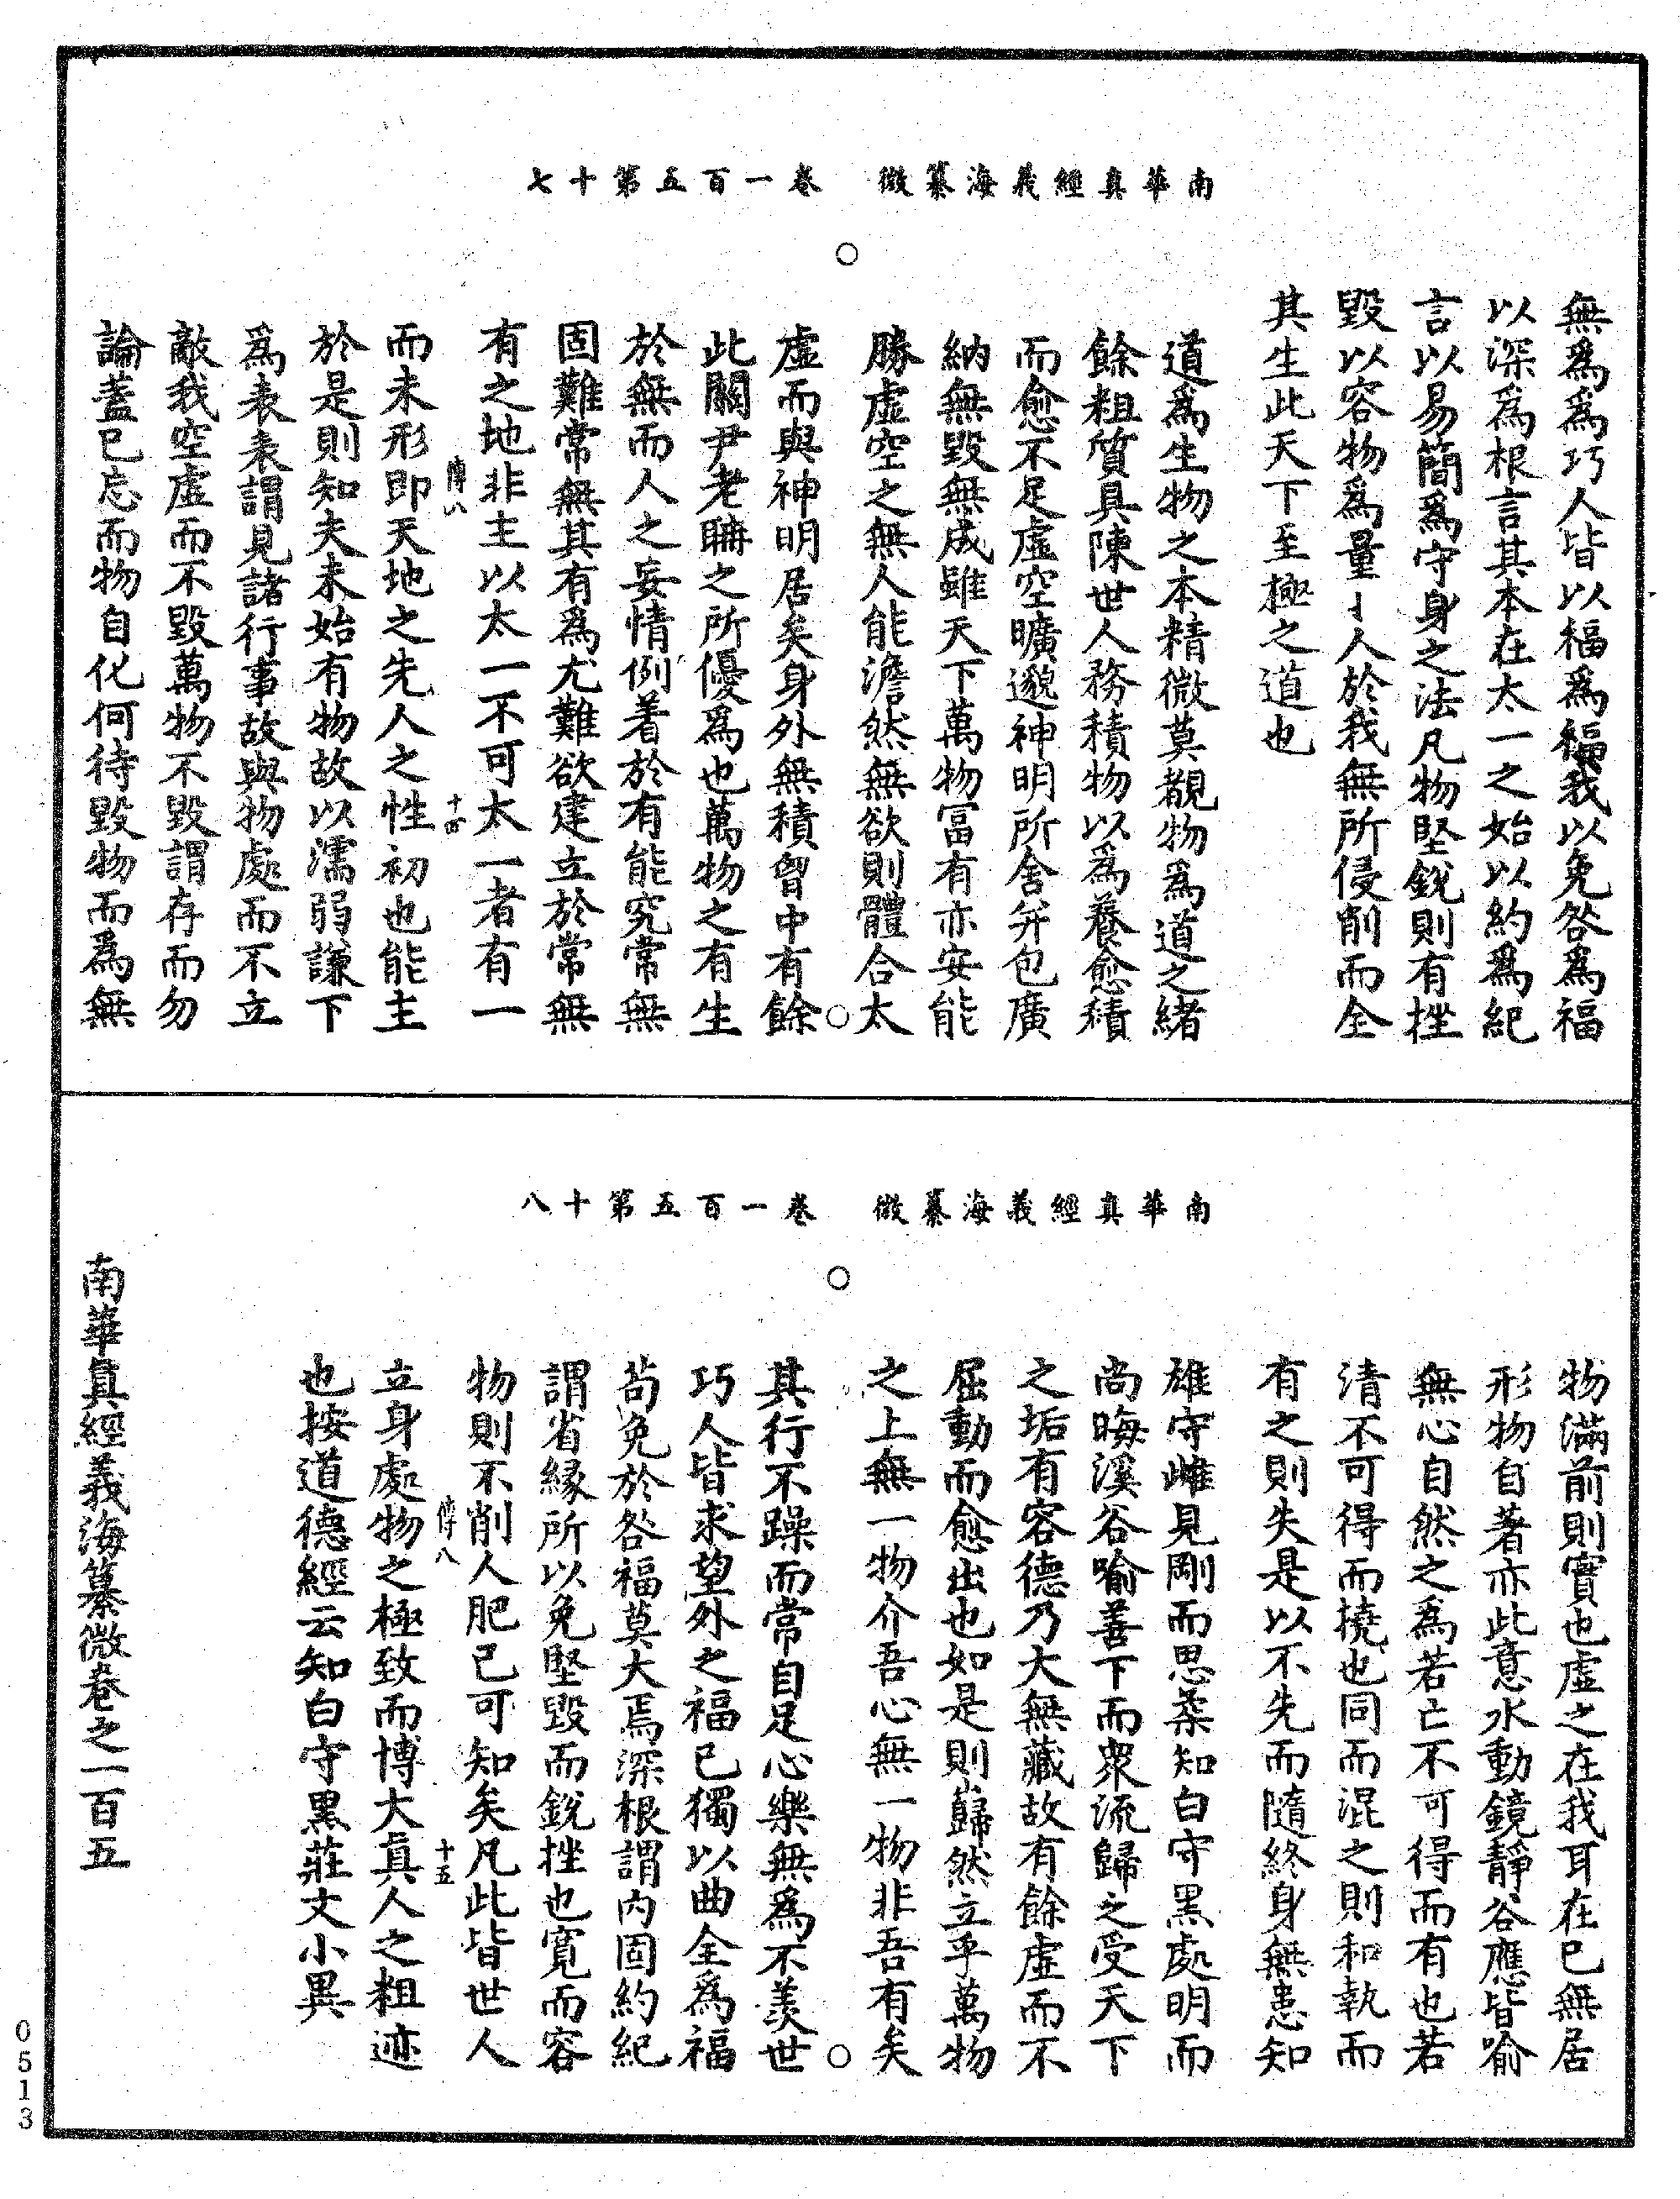 南華真經義海纂微　卷一百五第十七
無爲爲巧人皆以福爲福我以免咎爲福
以深爲根言其本在太一之始以約爲紀
言以易簡爲守身之法凡物堅銳則有挫
毀以容物爲量人於我無所侵削而全
其生此天下至極之道也
道爲生物之本精微莫覩物爲道之緒
餘粗質具陳世人務積物以爲養愈積
而愈不足虛空曠邈神明所舍并包廣
納無毀無成雖天下萬物富有亦安能
勝虛空之無人能澹然無欲則體合太
虛而與神明居矣身外無積胷中有餘
此關尹老聃之所優爲也萬物之有生
於無而人之妄情例着於有能究常無
固難常無其有爲尤難欲建立於常無
有之地非主以太一不可太一者有一
傳八　十四
而未形即天地之先人之性初也能主
於是則知夫未始有物故以濡弱謙下
爲表表謂見諸行事故與物處而不立
敵我空虛而不毀萬物不毀謂存而勿
論蓋已忘而物自化何待毀物而爲無
南華真經義海纂微　卷一百五第十八
物滿前則實也虛之在我耳在已無居
形物自著亦此意水動鏡靜谷應皆喻
無心自然之爲若亡不可得而有也若
清不可得而撓也同而混之則和執而
有之則失是以不先而隨終身無患知
雄守雌見剛而思柔知白守黑處明而
尚晦溪谷喻善下而衆流歸之受天下
之垢有容德乃大無藏故有餘虛而不
屈動而愈出也如是則巋然立乎萬物
之上無一物介吾心無一物非吾有矣
其行不躁而常自足心樂無爲不羨世
巧人皆求望外之福已獨以曲全爲福
苟免於咎福莫大焉深根謂内固約紀
謂省緣所以免堅毀而銳挫也寬而容
物則不削人肥己可知矣凡此皆世人
傳八　十五
立身處物之極致而博大真人之粗迹
也按道德經云知白守黑莊文小異
南華真經義海纂微卷之一百五
0513